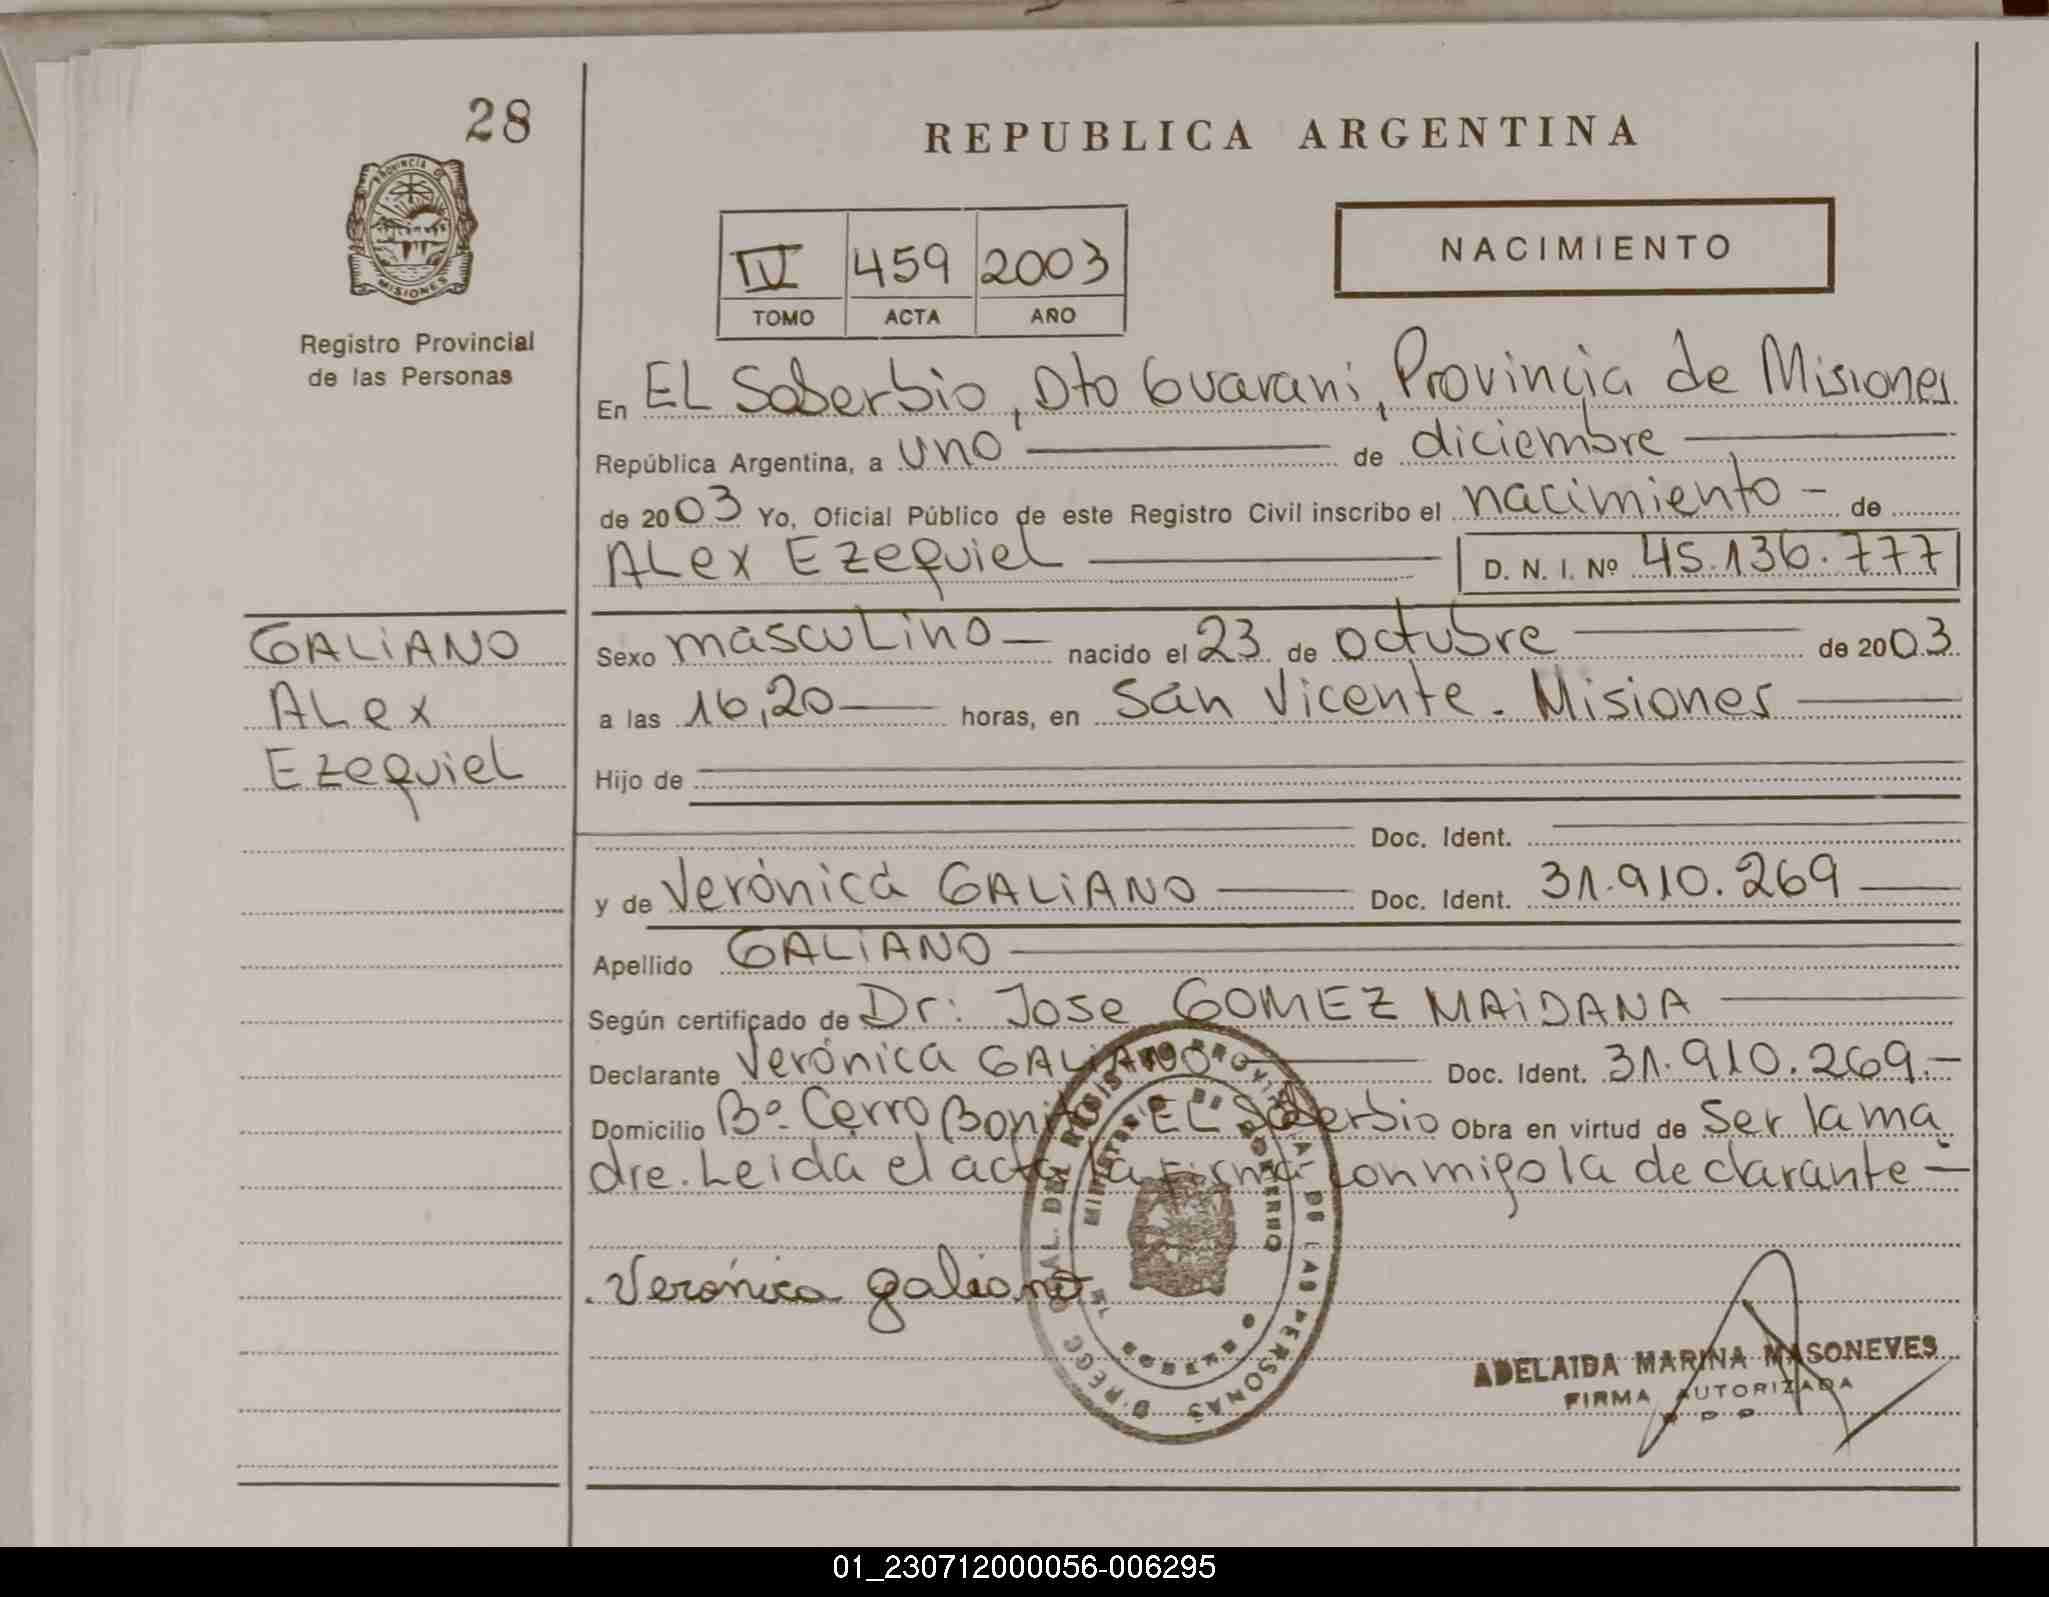 28
PROVINCIA DE
MISIONES
Registro Provincial
de las Personas
REPUBLICA ARGENTINA
IV 459 2003
TOMO ACTA AÑO
NACIMIENTO
En EL Soberbio, Dto Guarani, Provincia de Misiones
República Argentina, a uno de diciembre
de 2003 Yo, Oficial Público de este Registro Civil inscribo el nacimiento - de
ALex EzequieL
D. N. I. Nº 45.136.777
GALiANO
ALex
EzequieL
Sexo mascuLino nacido el 23 de octubre de 2003
a las 16,20 horas, en San Vicente. Misiones
Hijo de
Doc. Ident.
y de Verónica GALiANO Doc. Ident. 31.910.269
Apellido GALiANO
Según certificado de Dr: Jose GOMEZ MAiDANA
Declarante Verónica GALiANO Doc. Ident. 31.910.269.-
Domicilio Bº Cerro Bonito EL Soberbio Obra en virtud de ser la ma
dre. Leida el acta la firma conmigo la declarante -
Verónica galiano
REGISTRO PROVINCIAL DE LAS PERSONAS
MINISTERIO DE GOBIERNO
ADELAIDA MARINA MASONEVES
FIRMA AUTORIZADA
01_230712000056-006295